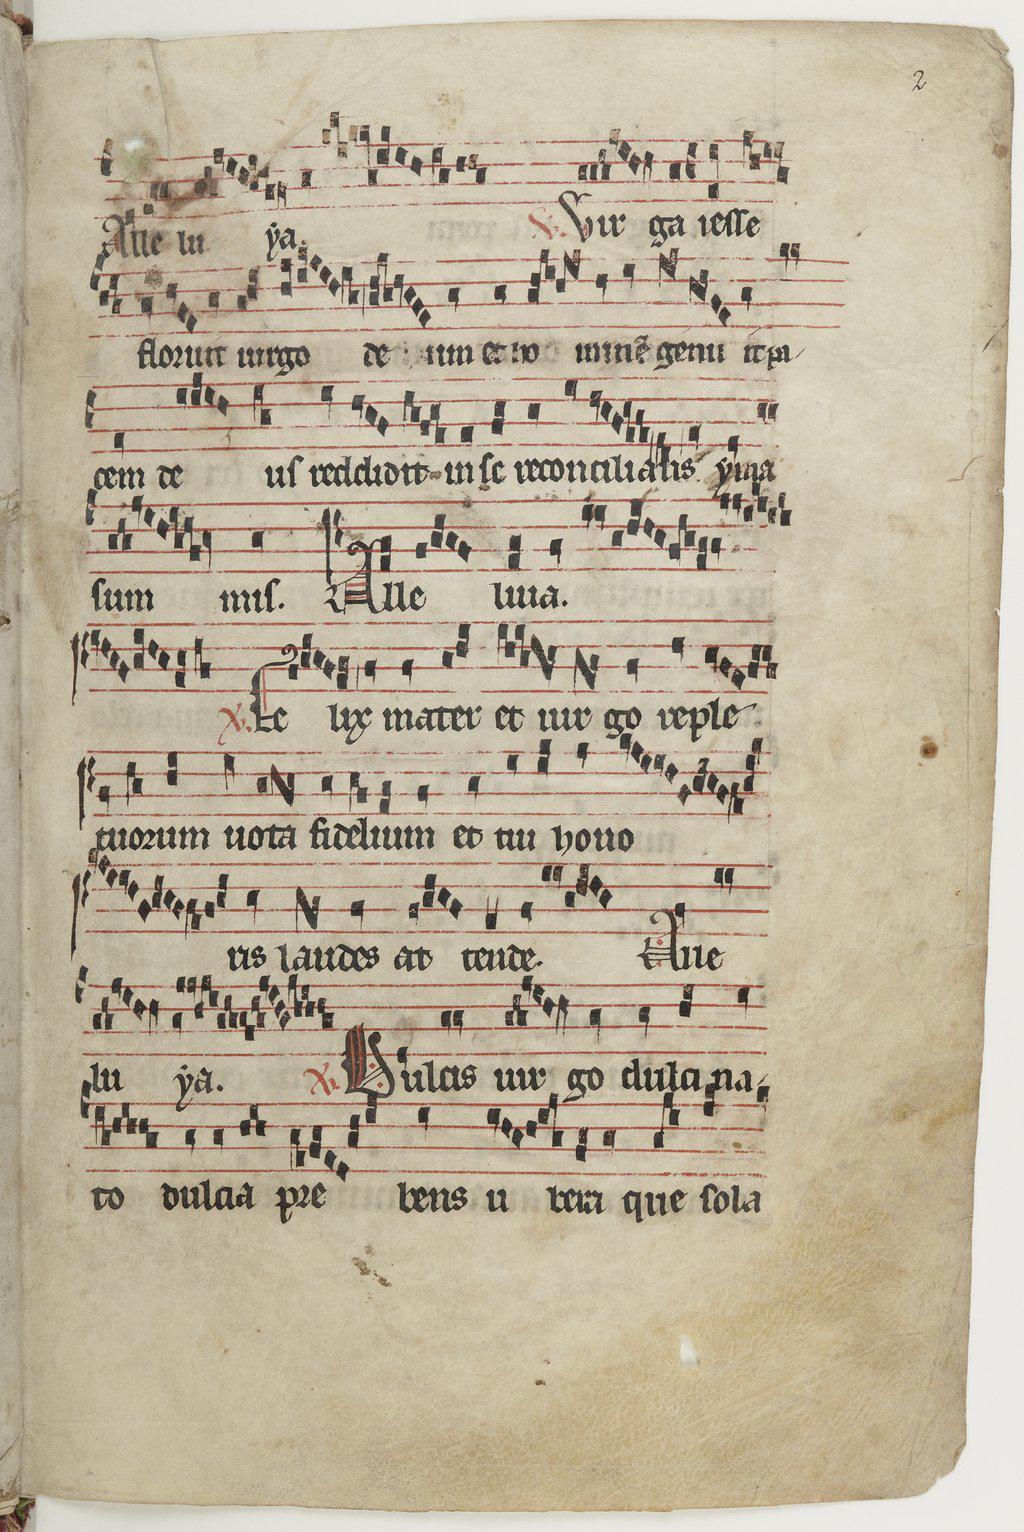 2
Alle lu ya. V. Vir ga iesse
floruit uirgo de um et ho minē genu it pa
cem de us reddidit in se reconcilians yma
sum mis. Alle luia.
V. Fe lix mater et uir go reple
tuorum uota fidelium et tiu hono
ris laudes at tende. Alle
lu ya. V. Dulcis uir go dulci na
to dulcia pre bens u bera que sola